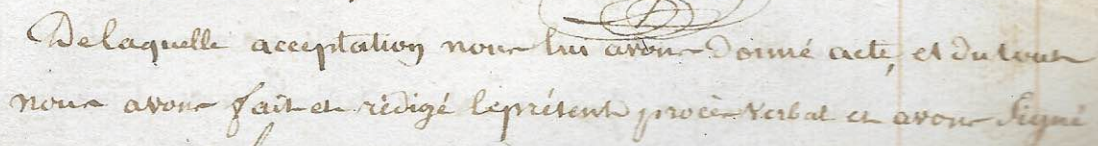 De laquelle acceptation nous lui avons donné acte, et du tout
nous avons fait et rédigé le présent procès verbal et avons signé